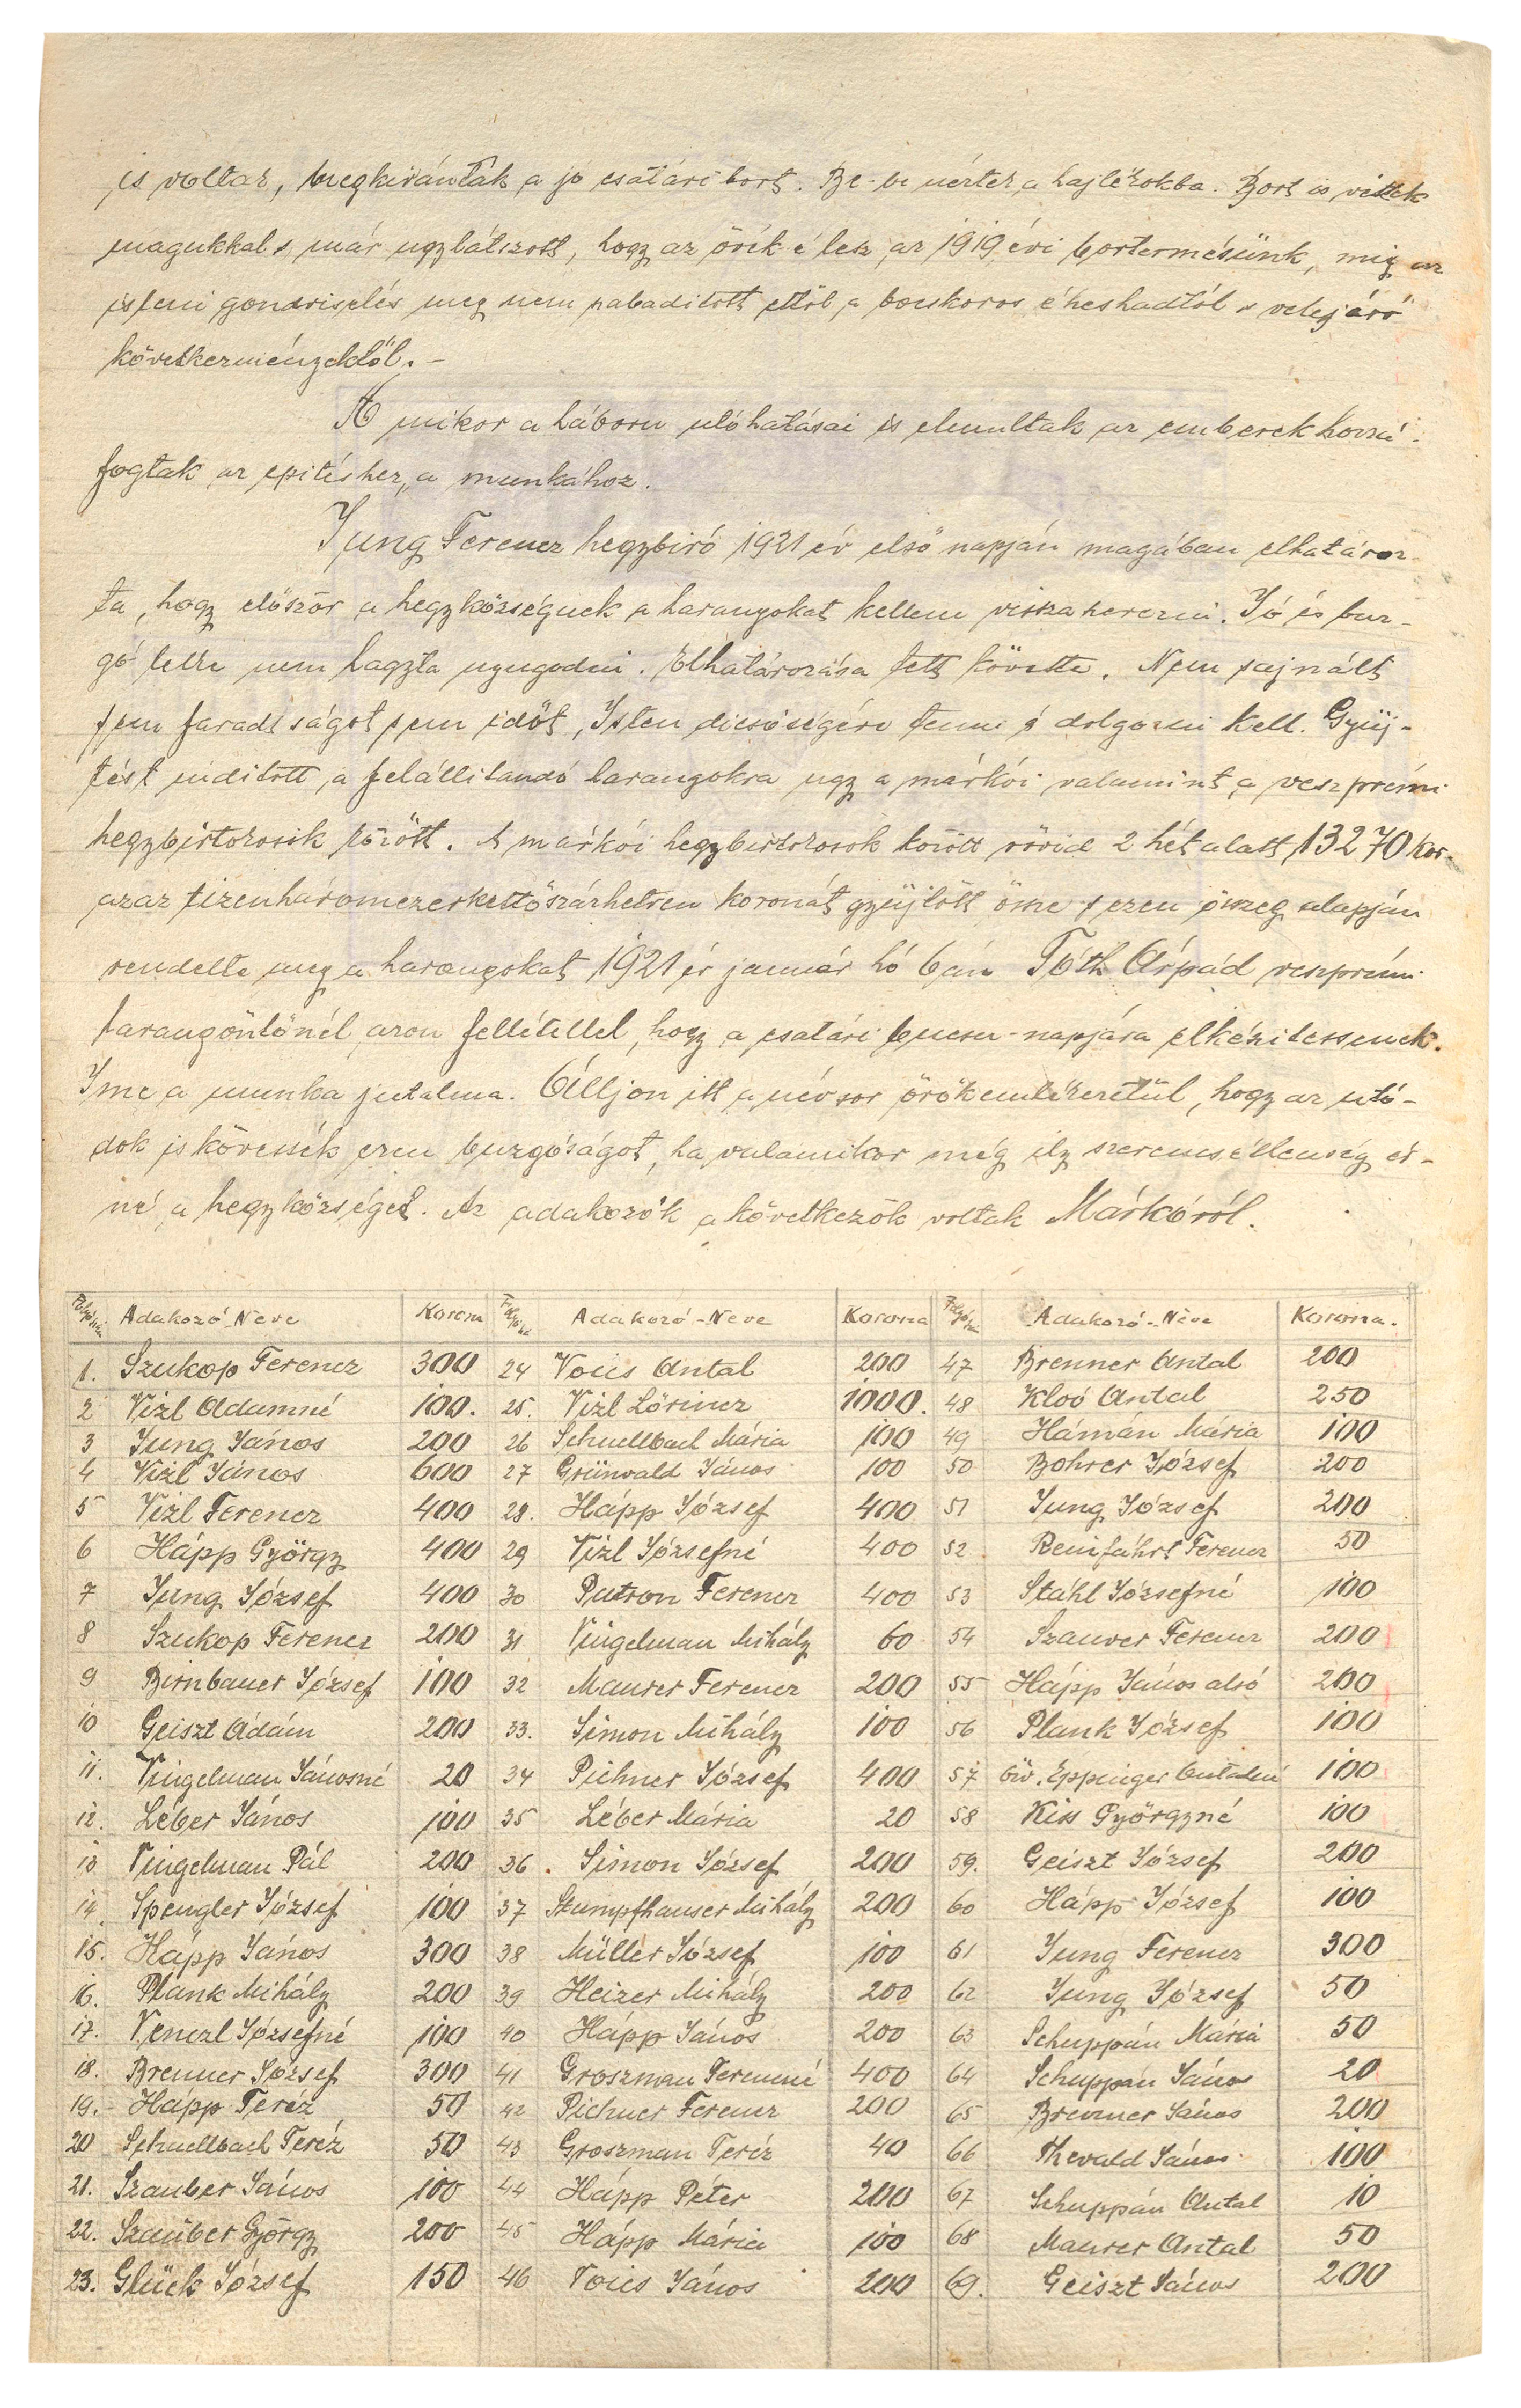 is voltak, megkivánták a jó csatári bort. Be-be nértek a hajlékokba. Bort is vittek
magukkal s már ugylátszott, hogy az övék é lesz az 1919 évi bortermésünk, mig az
isteni gondviselés meg nem szabaditott ettől a bocskoros éheshadtól s velejáró
következményektől.-
A mikor a háboru utóhatásai is elmultak az emberek hozzá-
fogtak az epitéshez, a munkához.
Jung Ferencz hegybiró 1921 év első napján magában elhatároz-
ta, hogy először a hegyközségnek a harangokat kellene visszaszerezni. Jó és buz-
gó lelke nem hagyta nyugodni. Elhatározása tett követte. Nem sajnált
sem faradtságot sem időt, Isten dicsőségére tenni s dolgozni kell. Gyüj-
tést inditott a felállitandó harangokra ugy a márkói valamint a veszprémi
hegybirtokosok között. A márkói hegybirtokosok között rövid 2 hét alatt 13270 kor.
azaz tizenháromezerkettőszázhetven koronát gyüjtött össze s ezen összeg alapján
rendelte meg a harangokat 1921 év január hó 6án Tóth Árpád veszprémi
harangöntőnél azon feltétellel, hogy a csatári bucsu-napjára elkészitessenek.
Ime a munka jutalma. Álljon itt a névsor örök emlékezetül, hogy az utó-
dok is kövessék ezen buzgóságot, ha valamikor még ily szerencsétlenség ér-
né a hegyközséget. Az adakozók a következők voltak Márkóról.
Folyószám Adakozó-Neve Korona Folyószám Adakozó-Neve Korona Folyószám Adakozó-Neve Korona.
1. Szukop Ferencz 300 24 Voics Antal 200 47 Brenner Antal 200
2 Vizl Adamné 100. 25. Vizl Lőrincz 1000. 48 Kloó Antal 250
3 Jung János 200 26 Schnellbach Mária 100 49 Hámán Mária 100
4 Vizl János 600 27 Grünvald János 100 50 Bohrer József 200
5 Vizl Ferencz 400 28. Hápp József 400 51 Jung József 200
6 Hápp György 400 29 Vizl Józsefné 400 52 Reinfahrt Ferencz 50
7 Jung József 400 30 Putron Ferencz 400 53 Stáhl Józsefné 100
8 Szukop Ferencz 200 31 Vingelman Mihály 60 54 Szauver Ferencz 200
9 Birnbauer József 100 32 Maurer Ferencz 200 55 Hápp János alsó 200
10 Geiszt Ádám 200 33. Simon Mihály 100 56 Plank József 100
11. Vingelman Jánosné 20 34 Pichner József 400 57 özv. Eppinger Antalné 100
12. Léber János 100 35 Léber Mária 20 58 Kiss Györgyné 100
13 Vingelman Pál 200 36. Simon József 200 59. Geiszt József 200
14. Spengler József 100 37 Stumpfhauser Mihály 200 60 Hápp József 100
15. Hápp János 300 38 Müller József 100 61 Jung Ferencz 300
16. Plank Mihály 200 39 Heizer Mihály 200 62 Jung József 50
17. Venczl Józsefné 100 40 Hápp János 200 63 Schuppán Mária 50
18. Brenner József 300 41 Groszman Ferencné 400 64 Schuppán János 20
19. Hápp Teréz 50 42 Pichner Ferencz 200 65 Brenner János 200
20 Schnellbach Teréz 50 43 Groszman Teréz 40 66 Thevald János 100
21. Szauber János 100 44 Hápp Péter 200 67 Schuppán Antal 10
22. Szauber György 200 45 Hápp Mária 100 68 Maurer Antal 50
23. Glück József 150 46 Voics János 200 69. Geiszt János 200